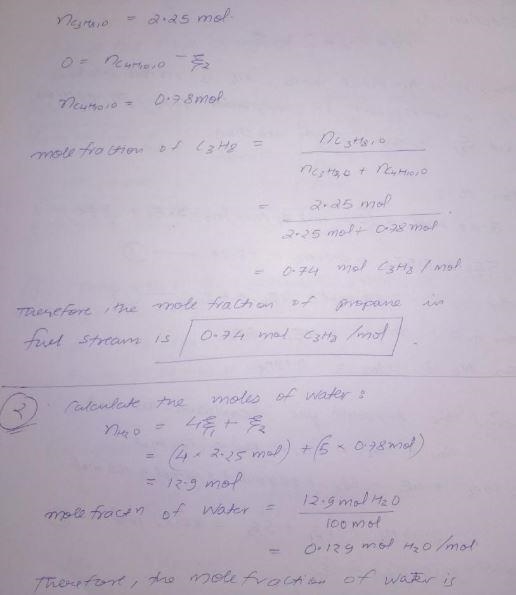 nC3H8,0 = 2.25 mol.
0 = nC4H10,0 - ξ2
nC4H10,0 = 0.78mol
mole fraction of C3H8 = nC3H8,0 / nC3H8,0 + nC4H10,0
= 2.25 mol / 2.25 mol + 0.78 mol .
= 0.74 mol C3H8 / mol
Therefore, the mole fraction of propane in
fuel stream is 0.74 mol C3H8 /mol .
2 Calculate the moles of water :
nH2O = 4ξ1 + ξ2
= (4 × 2.25 mol) + (5 × 0.78 mol)
= 12.9 mol
mole fracten of water = 12.9 mol H2O / 100 mol
= 0.129 mol H2O /mol
Therefore, the mole fraction of water is